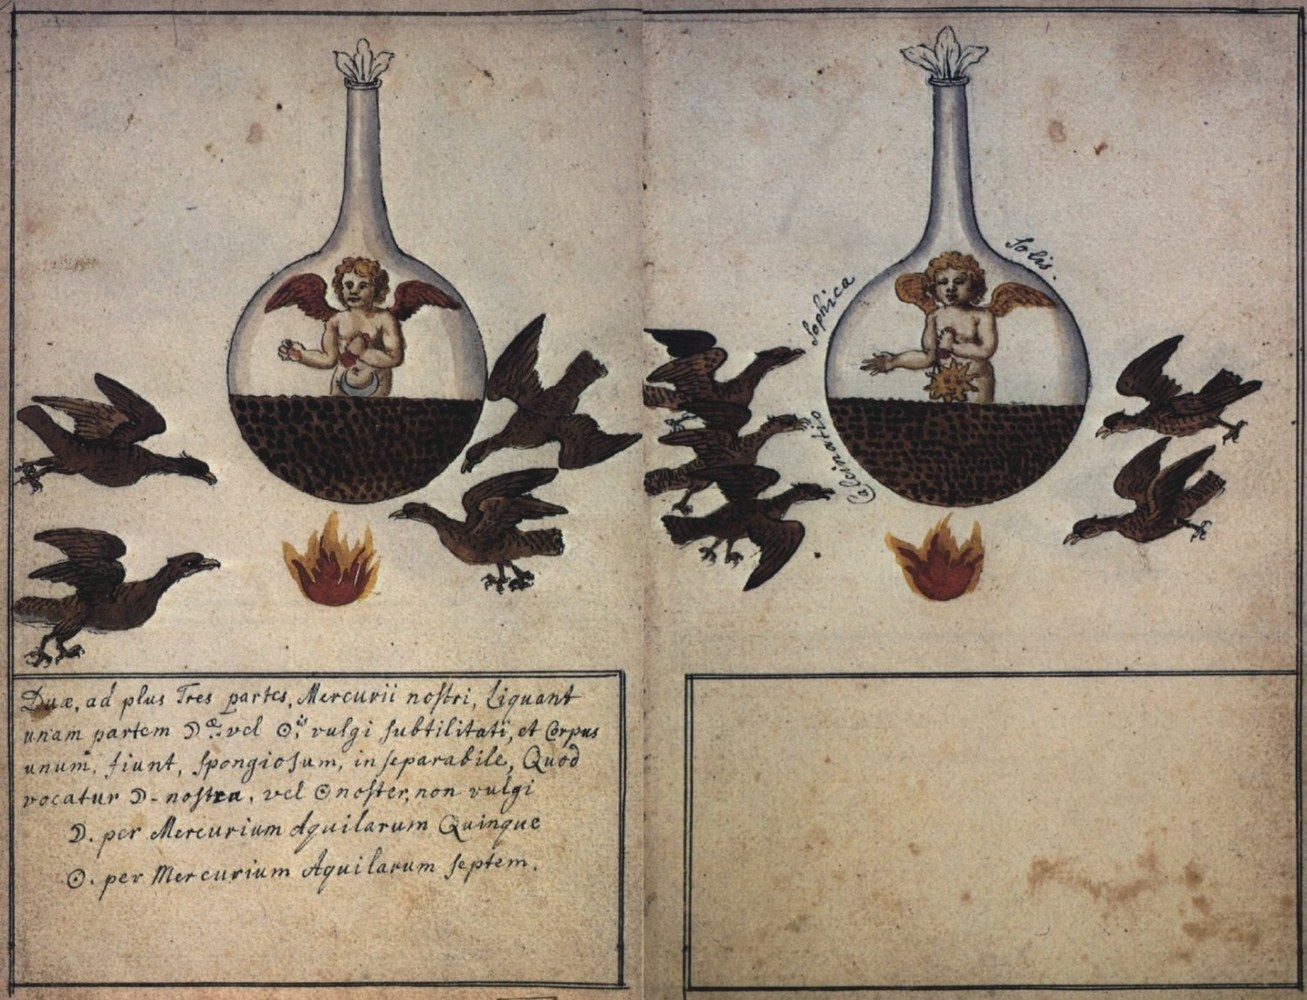 Duæ, ad plus Tres partes, Mercurii noſtri, Liquant
unam partem ☽æ: vel ☉: vulgi ſubtilitati, et Corpus
unum, fiunt, ſpongioſum, inſeparabile, Quod
vocatur ☽-noſtra, vel ☉ noſter, non vulgi
☽. per Mercurium Aquilarum Quinque
☉. per Mercurium Aquilarum ſeptem.
Calcinatio
Sophica
Solis.